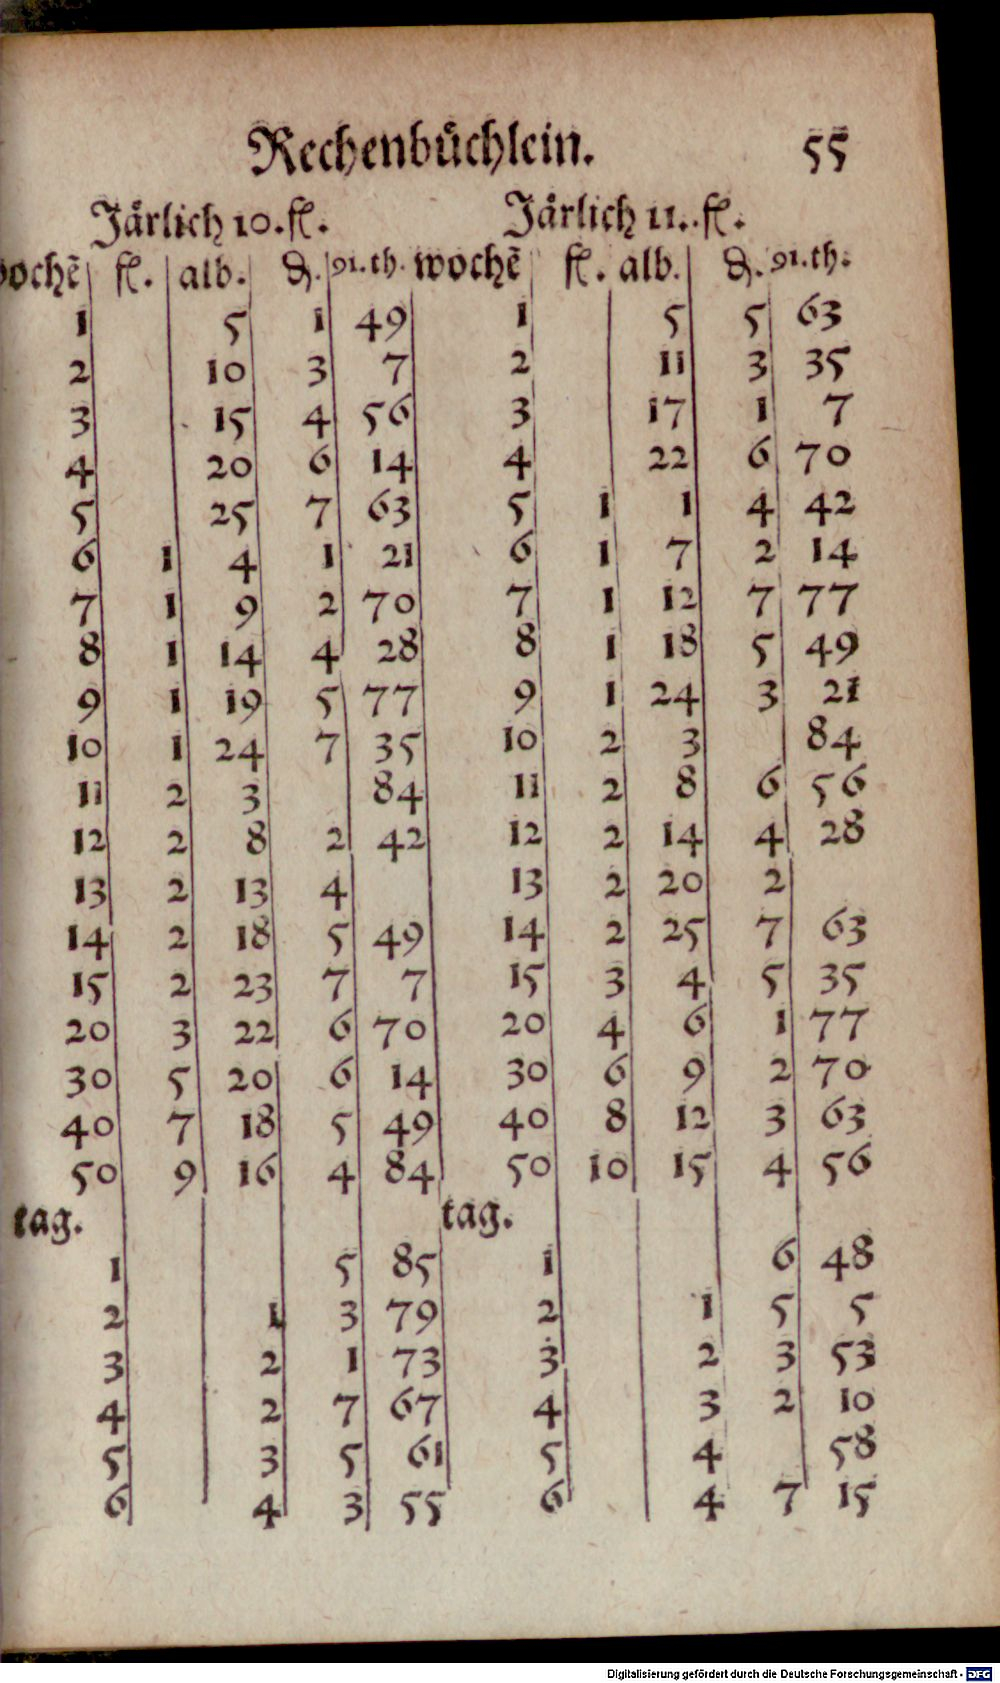 Rechenbuͤchlein. 55
Jaͤrlich 10. fl. Jaͤrlich 11. fl.
wochẽ fl. alb. ₰. 91.th. wochẽ fl. alb. ₰. 91.th.
1 5 1 49 1 5 5 63
2 10 3 7 2 11 3 35
3 15 4 56 3 17 1 7
4 20 6 14 4 22 6 70
5 25 7 63 5 1 1 4 42
6 1 4 1 21 6 1 7 2 14
7 1 9 2 70 7 1 12 7 77
8 1 14 4 28 8 1 18 5 49
9 1 19 5 77 9 1 24 3 21
10 1 24 7 35 10 2 3 84
11 2 3 84 11 2 8 6 56
12 2 8 2 42 12 2 14 4 28
13 2 13 4 13 2 20 2
14 2 18 5 49 14 2 25 7 63
15 2 23 7 7 15 3 4 5 35
20 3 22 6 70 20 4 6 1 77
30 5 20 6 14 30 6 9 2 70
40 7 18 5 49 40 8 12 3 63
50 9 16 4 84 50 10 15 4 56
tag. tag.
1 5 85 1 6 48
2 1 3 79 2 1 5 5
3 2 1 73 3 2 3 53
4 2 7 67 4 3 2 10
5 3 5 61 5 4 58
6 4 3 55 6 4 7 15
Digitalisierung gefördert durch die Deutsche Forschungsgemeinschaft - DFG